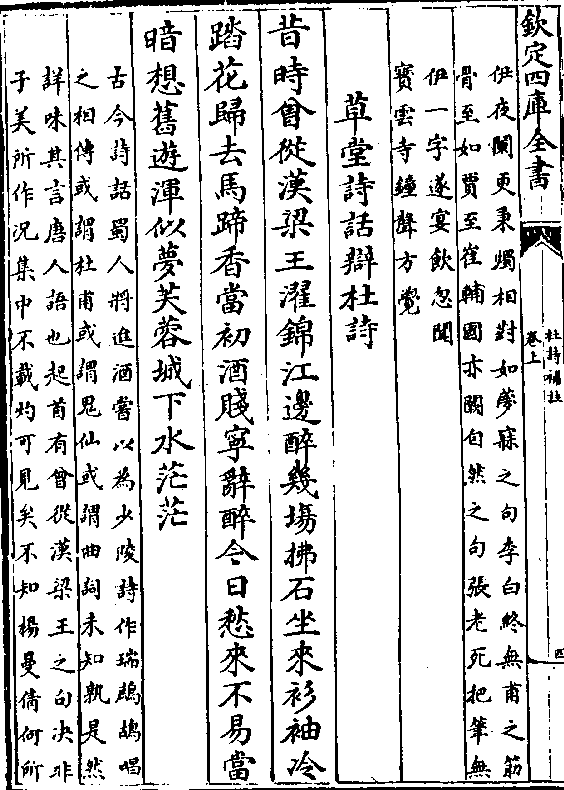 欽定四庫全書
杜詩補註
卷上
四
伊夜闌更秉燭相對如夢寐之句李白終無甫之筋
骨至如賈至崔輔國亦闕自然之句張老死把筆無
伊一字遂宴飲忽聞
寶雲寺鐘聲方覺
草堂詩話辯杜詩
昔時曾從漢梁王濯錦江邊醉幾塲拂石坐來衫袖冷
踏花歸去馬蹄香當初酒賤寧辭醉今日愁來不易當
暗想舊遊渾似夢芙蓉城下水茫茫
古今詩話蜀人將進酒嘗以為少陵詩作瑞鷓鴣唱
之相傳或謂杜甫或謂鬼仙或謂曲詞未知孰是然
詳味其言唐人語也起首有曾從漢梁王之句决非
子美所作况集中不載灼可見矣不知楊曼倩何所